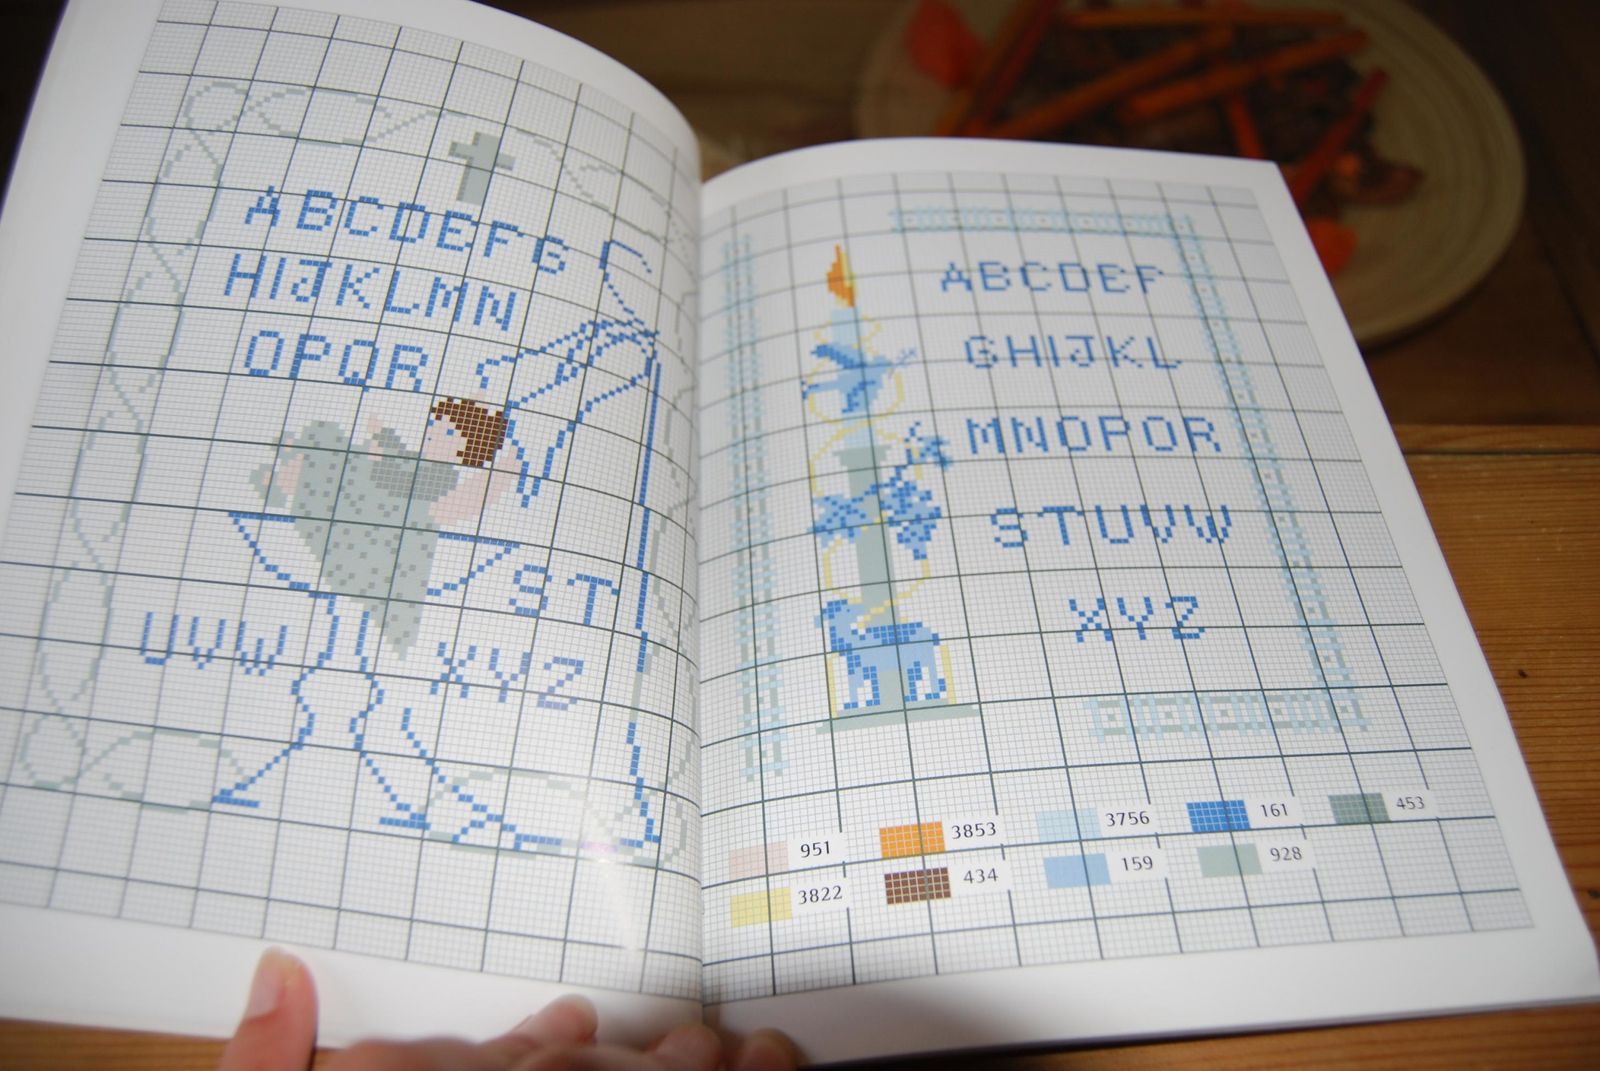 ABCDEFG
HIJKLMN
OPQR
ST
UVW XYZ
ABCDEF
GHIJKL
MNOPQR
STUVW
XYZ
951 3853 3756 161 453
3822 434 159 928